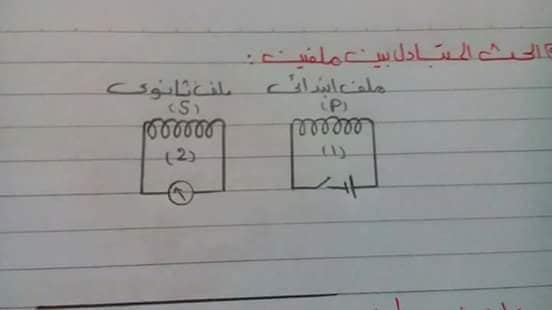 الحث المتبادل بين ملفين :
ملف ابتدائي ملف ثانوي
(P) (S)
(1) (2)